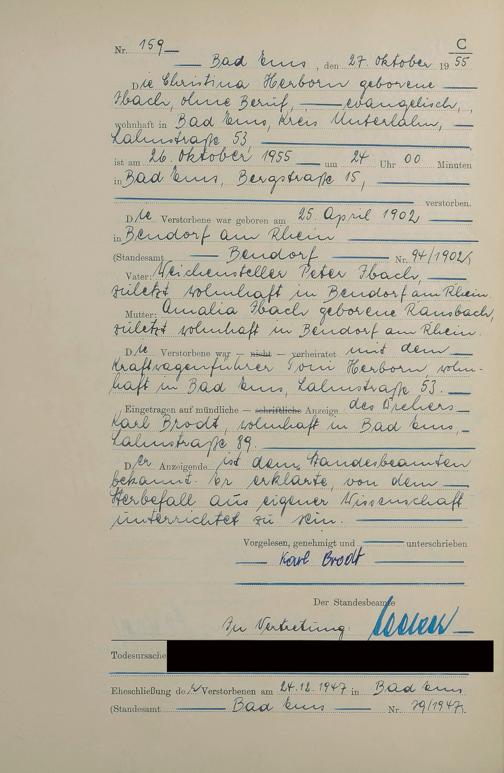 C
Nr. 159
Bad Ems, den 27. Oktober 1955
Die Christina Herborn geborene
Ibach, ohne Beruf, evangelisch,
wohnhaft in Bad Ems, Kreis Unterlahn,
Lahnstraße 53,
ist am 26. Oktober 1955 um 24 Uhr 00 Minuten
in Bad Ems, Bergstraße 15,
verstorben.
Die Verstorbene war geboren am 25. April 1902
in Bendorf am Rhein
(Standesamt Bendorf Nr. 94/1902)
Vater: Weichensteller Peter Ibach,
zuletzt wohnhaft in Bendorf am Rhein.
Mutter: Amalia Ibach geborene Ransbach,
zuletzt wohnhaft in Bendorf am Rhein.
Die Verstorbene war — nicht — verheiratet mit dem
Kraftwagenführer Toni Herborn, wohn-
haft in Bad Ems, Lahnstraße 53.
Eingetragen auf mündliche — schriftliche Anzeige des Drehers
Karl Brodt, wohnhaft in Bad Ems,
Lahnstraße 89.
Der Anzeigende ist dem Standesbeamten
bekannt. Er erklärte, von dem
Sterbefall aus eigener Wissenschaft
unterrichtet zu sein.
Vorgelesen, genehmigt und unterschrieben
Karl Brodt
Der Standesbeamte
In Vertretung:
Todesursache
Eheschließung der Verstorbenen am 24.12.1947 in Bad Ems
(Standesamt Bad Ems Nr. 79/1947)